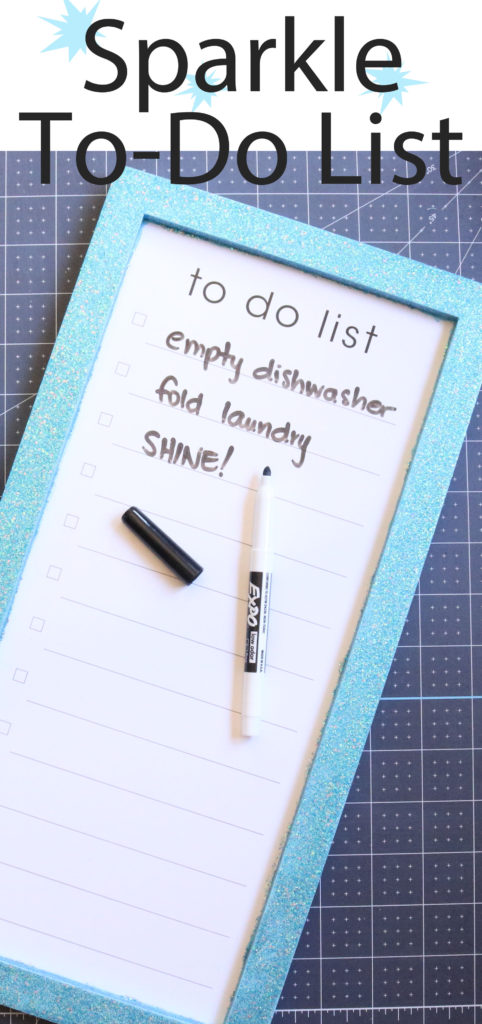 Sparkle
To-Do List
to do list
empty dishwasher
fold laundry
SHINE!
EXPO
low odor